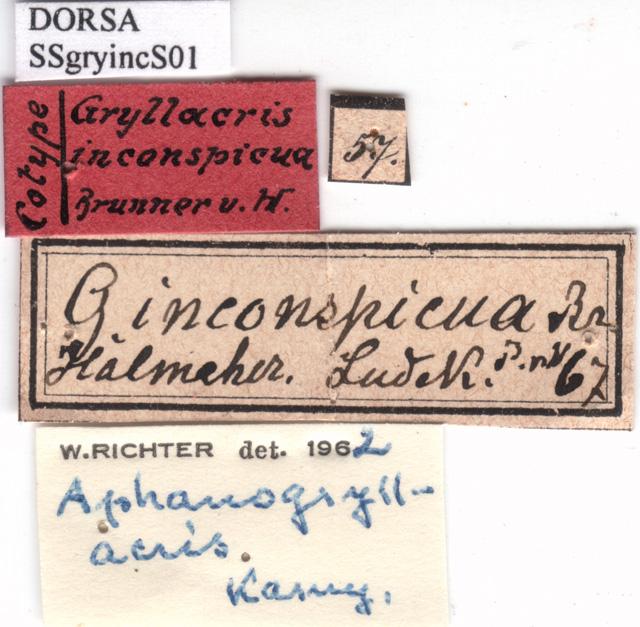 DORSA
SSgryincS01
Cotype
Gryllacris
inconspicua
Brunner v. W.
57.
G inconspicua Br
Halmaher. Lud N. 67
W.RICHTER det. 1962
Aphanogryll-
acris.
Karny.